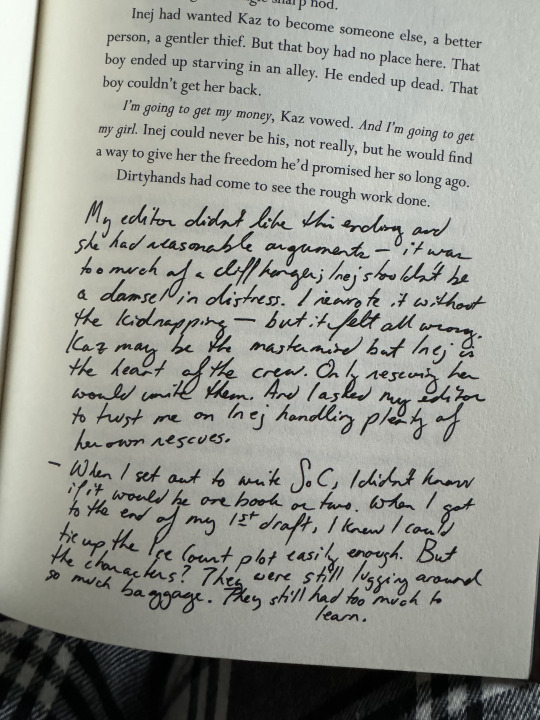 sharp nod.
Inej had wanted Kaz to become someone else, a better
person, a gentler thief. But that boy had no place here. That
boy ended up starving in an alley. He ended up dead. That
boy couldn't get her back.
I'm going to get my money, Kaz vowed. And I'm going to get
my girl. Inej could never be his, not really, but he would find
a way to give her the freedom he'd promised her so long ago.
Dirtyhands had come to see the rough work done.
My editor didn't like this ending and
she had reasonable arguments — it was
too much of a cliffhanger; Inej shouldn't be
a damsel in distress. I rewrote it without
the kidnapping — but it felt all wrong.
Kaz may be the mastermind but Inej is
the heart of the crew. Only rescuing her
would unite them. And I asked my editor
to trust me on Inej handling plenty of
her own rescues.
— When I set out to write SoC, I didn't know
if it would be one book or two. When I got
to the end of my 1st draft, I knew I could
tie up the Ice Court plot easily enough. But
the characters? They were still lugging around
so much baggage. They still had too much to
learn.